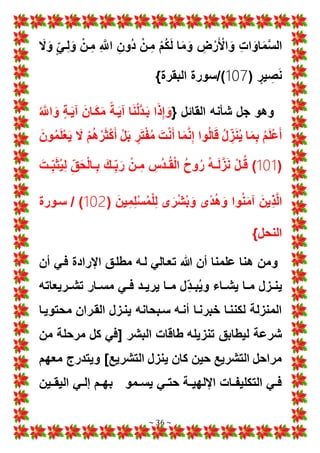 السَّمَاوَاتِ وَالْأَرْضِ وَمَا لَكُمْ مِنْ دُونِ اللَّهِ مِنْ وَلِيٍّ وَلَا
نَصِيرٍ (107)/سورة البقرة}
وهو جل شأنه القائل {وَإِذَا بَدَّلْنَا آيَةً مَكَانَ آيَةٍ وَاللَّهُ
أَعْلَمُ بِمَا يُنَزِّلُ قَالُوا إِنَّمَا أَنْتَ مُفْتَرٍ بَلْ أَكْثَرُهُمْ لَا يَعْلَمُونَ
(101) قُلْ نَزَّلَهُ رُوحُ الْقُدُسِ مِنْ رَبِّكَ بِالْحَقِّ لِيُثَبِّتَ
الَّذِينَ آمَنُوا وَهُدًى وَبُشْرَى لِلْمُسْلِمِينَ (102) / سورة
النحل}
ومن هنا علمنا أن الله تعالي له مطلق الإرادة في أن
ينزل ما يشاء ويُبدِّل ما يريد في مسار تشريعاته
المنزلة لكننا خبرنا أنه سبحانه ينزل القران محتويا
شرعة ليطابق تنزيله طاقات البشر [في كل مرحلة من
مراحل التشريع حين كان ينزل التشريع] ويتدرج معهم
في التكليفات الإلهية حتي يسمو بهم إلي اليقين
~ 36 ~